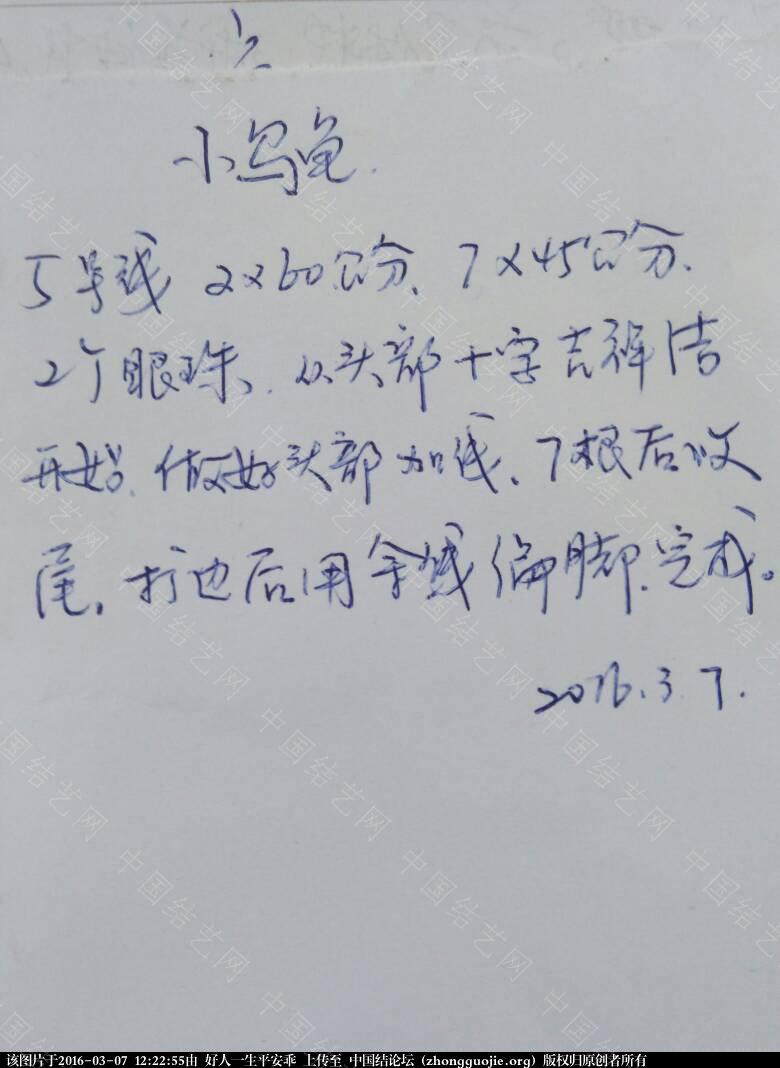 六
小乌龟.
5号线 2×60公分、7×45公分.
2个眼珠、从头部十字吉祥洁
开始、做好头部加线、7根后收
尾、打边后用余线编脚、完成。
2016.3.7.
中国结艺网
该图片于2016-03-07 12:22:55由 好人一生平安乖 上传至 中国结论坛 (zhongguojie.org) 版权归原创者所有